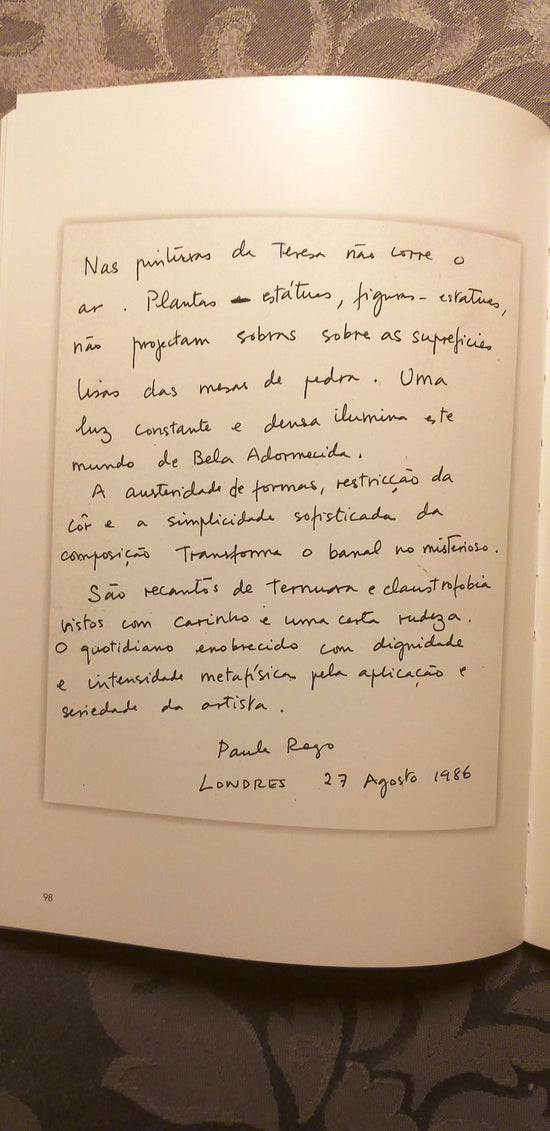 Nas pinturas da Teresa não corre o
ar. Plantas - estátuas, figuras - estatuas,
não projectam sobras sobre as supreficies
lisas das mesas de pedra. Uma
luz constante e densa ilumina este
mundo de Bela Adormecida.
A austeridade de formas, restricção da
côr e a simplicidade sofisticada da
composição transforma o banal no misterioso.
São recantos de ternura e claustrofobia
vistos com carinho e uma certa rudeza.
O quotidiano enobrecido com dignidade
e intensidade metafísica pela aplicação e
seriedade da artista.
Paula Rego
LONDRES 27 Agosto 1986
98